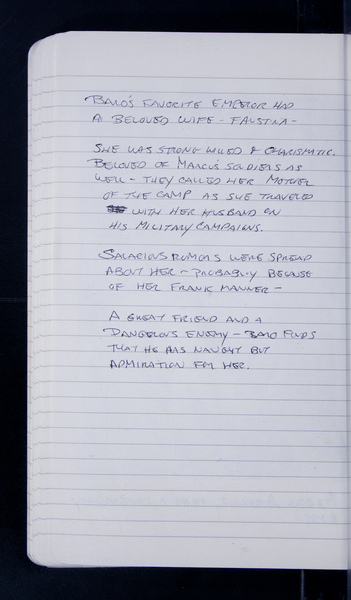 BALO'S FAVORITE EMPEROR HAD
A BELOVED WIFE - FAUSTINA -
SHE WAS STRONG WILLED & CHARISMATIC.
BELOVED OF MARCUS' SOLDIERS AS
WELL - THEY CALLED HER MOTHER
OF THE CAMP AS SHE TRAVELED
WITH HER HUSBAND ON
HIS MILITARY CAMPAIGNS.
SALACIOUS RUMORS WERE SPREAD
ABOUT HER - PROBABLY BECAUSE
OF HER FRANK MANNER -
A GREAT FRIEND AND A
DANGEROUS ENEMY - BALO FINDS
THAT HE HAS NAUGHT BUT
ADMIRATION FOR HER.